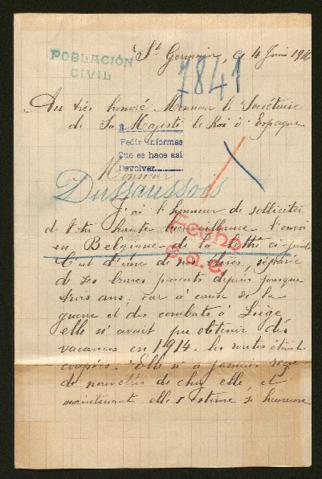 POBLACIÓN
CIVIL
St Germain, ce 10 Juin 191
7841
Au très honoré Monsieur le Secrétaire
de Sa Majesté le Roi d'Espagne
Pedir informes
Que es hace asi
Devolver
Monsieur
Dussaussois
J'ai l'honneur de solliciter
de Votre haute bienveillance l'envoi
en Belgique de la lettre ci-jointe
C'est d'une de nos séparée
de ses chers parents depuis presque
trois ans, car à cause de la
guerre et des combats à Liège,
elle n'avait pu obtenir des
vacances en 1914. les routes étaient
coupées. Elle n'a jamais reçu
de nouvelles de chez elle, et
maintenant elle s'estime si heureuse